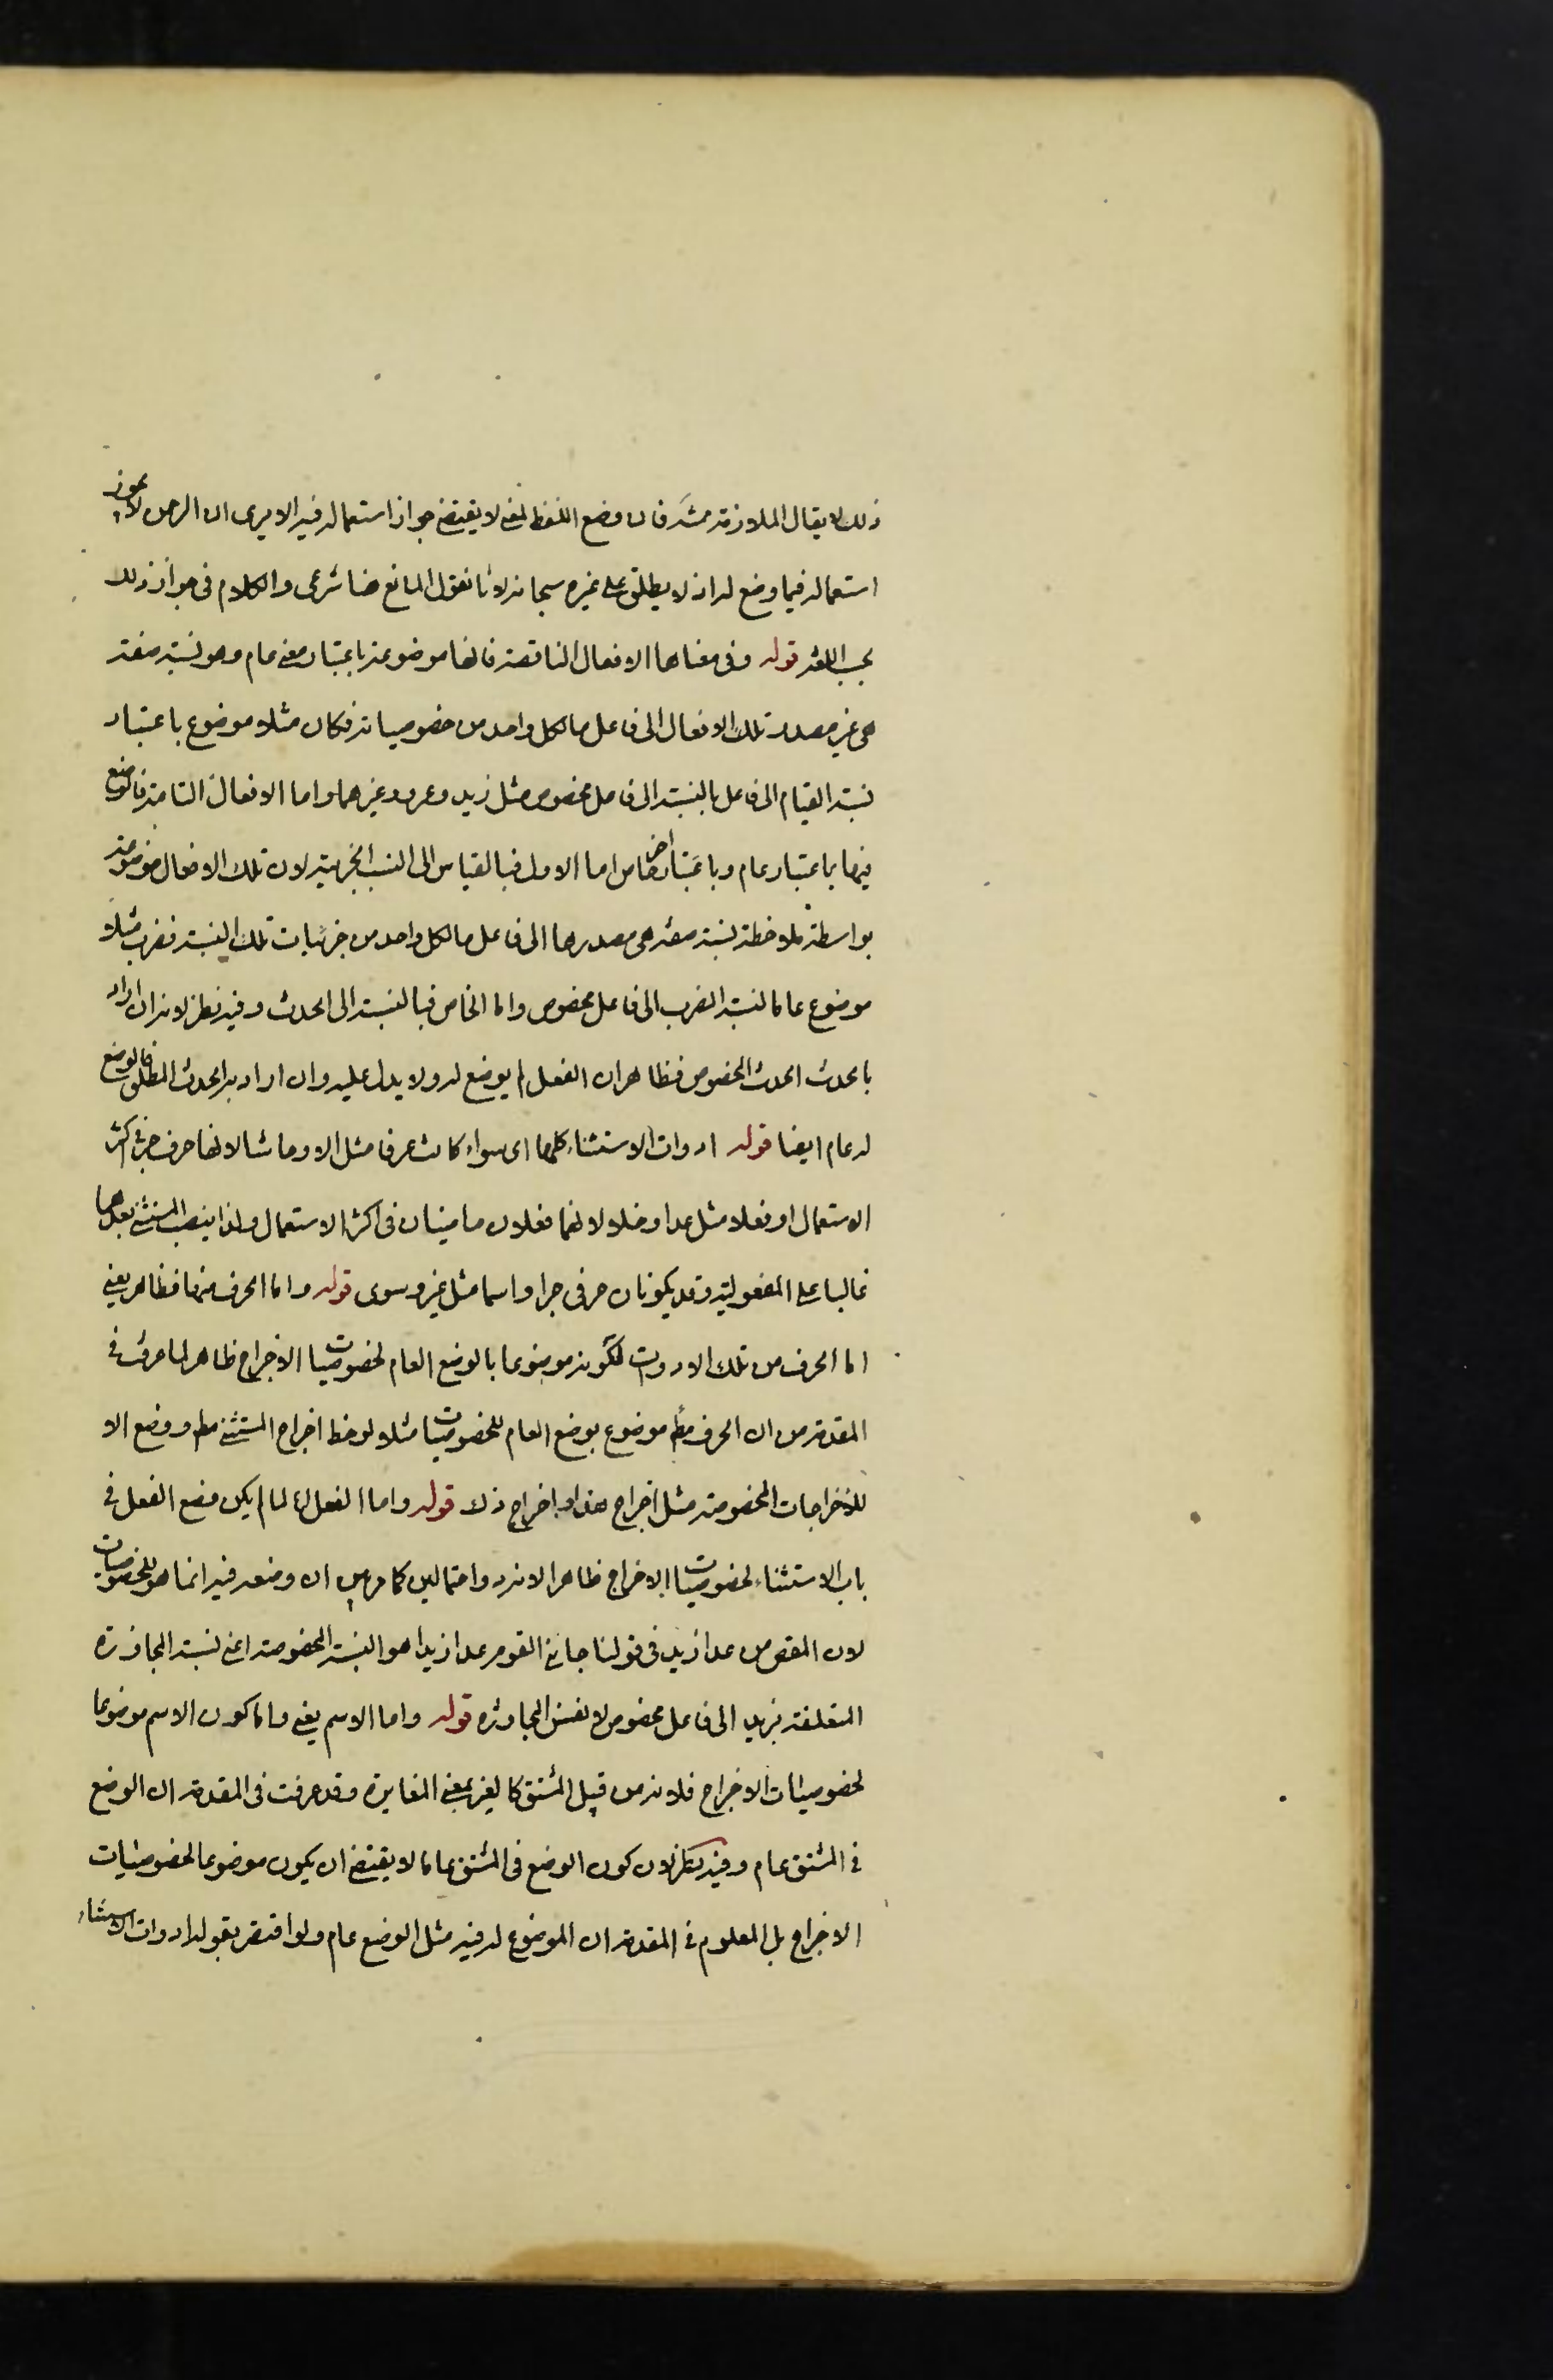 ذلك لا يقال الملازمة ممنوعة فان وضع اللفظ لمعنى لا يقتضى جواز استعماله فيه الا يرى ان الرحمن لا يجوز
استعماله فيما وضع له اذ لا يطلق على غيره سبحانه لانا نقول المانع هنا شرعى والكلام فى جواز ذلك
بحسب اللغة قوله وفى معناها الافعال الناقصة فانها موضوعة باعتبار معنى عام وهو نسبة صفة
هى غير مصدر تلك الافعال الى فاعل ما لكل واحد من خصوصياته فكان مثلا موضوع باعتبار
نسبة القيام الى فاعل بالنسبة الى فاعل مخصوص مثل زيد وعمرو وغيرهما واما الافعال التامة فالوضع
فيها باعتبار عام وباعتبار اخر خاص اما الاول فبالقياس الى النسب الجزئية لان تلك الافعال موضوعة
بواسطة ملاحظة نسبة صفة هى مصدرها الى فاعل ما لكل واحد من جزئيات تلك النسبة فضرب مثلا
موضوع عاما لنسبة الضرب الى فاعل مخصوص واما الخاص فبالنسبة الى الحدث وفيه نظر لانه ان اراد
بالحدث الحدث المخصوص فظاهر ان الفعل لم يوضع له ولا يدل عليه وان اراد به الحدث المطلق فالوضع
له عام ايضا قوله ادوات الاستثناء كلها اى سواء كانت حرفا مثل الا وحاشا لانها حرف جر فى اكثر
الاستعمال او فعلا مثل عدا وخلا لانهما فعلان ماضيان فى اكثر الاستعمال ولذا ينصب المستثنى بعدهما
غالبا على المفعولية وقد يكونان حرفى جر او اسما مثل غير وسوى قوله واما الحرف منها فظاهر يعنى
اما الحرف من تلك الادوات لكونه موضوعا بالوضع العام لخصوصيات الاخراج ظاهر لما عرفت فى
المقدمة من ان الحرف مط موضوع بوضع العام للخصوصيات مثلا لوحظ اخراج المستثنى مط ووضع الا
للاخراجات المخصوصة مثل اخراج هذا واخراج ذلك قوله واما الفعل لما لم يكن وضع الفعل فى
باب الاستثناء لخصوصيات الاخراج ظاهرا لانه ذو احتمالين كما مر بين ان وضعه فيه انما هو للخصوصيات
لان المقص من عدا زيد فى قولنا جانى القوم عدا زيدا هو النسبة المخصوصة اعنى نسبة المجاوزة
المتعلقة بزيد الى فاعل مخصوص لا نفس المجاوزة قوله واما الاسم يعنى واما كون الاسم موضوعا
لخصوصيات الاخراج فلانه من قبيل المشتق كالغير بمعنى المغايرة وقد عرفت فى المقدمة ان الوضع
فى المشتق عام وفيه نظر لان كون الوضع فى المشتق عاما لا يقتضى ان يكون موضوعا لخصوصيات
الاخراج بل المعلوم فى المقدمة ان الموضوع له فيه مثل الوضع عام ولو اقتصر بقوله ادوات الاستثناء